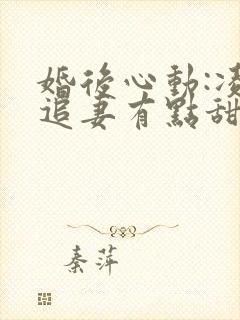 婚後心動:凌
追妻有點甜
秦萍